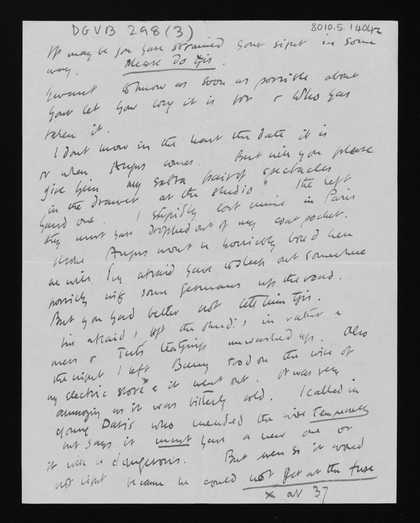 DGVB 298 (3)
8010.5.1404
It may be you have strained your sight in some
way. Please do this.
I want to know as soon as possible about
your let how long it is for & who has
taken it.
I don't know in the least the date it is
or when Angus comes. But will you please
give him my extra pair of spectacles
in the drawer at the studio the left
hand one. I stupidly lost mine in Paris
they must have dropped out of my coat pocket.
I hope Angus won't be horribly bored here
he will I'm afraid have to sleep out somewhere
possibly with some Germans up the road.
But you had better not tell him this.
I'm afraid I left the studio in rather a
mess & Tuts unwashed up. Also
the night I left Bunny trod on the wire of
my electric stove & it went out. It was very
annoying as it was bitterly cold. I called in
young Davis who mended the wire temporarily
but says it must have a new one or
it was dangerous. But even so it would
not light because he could not get at the fuse